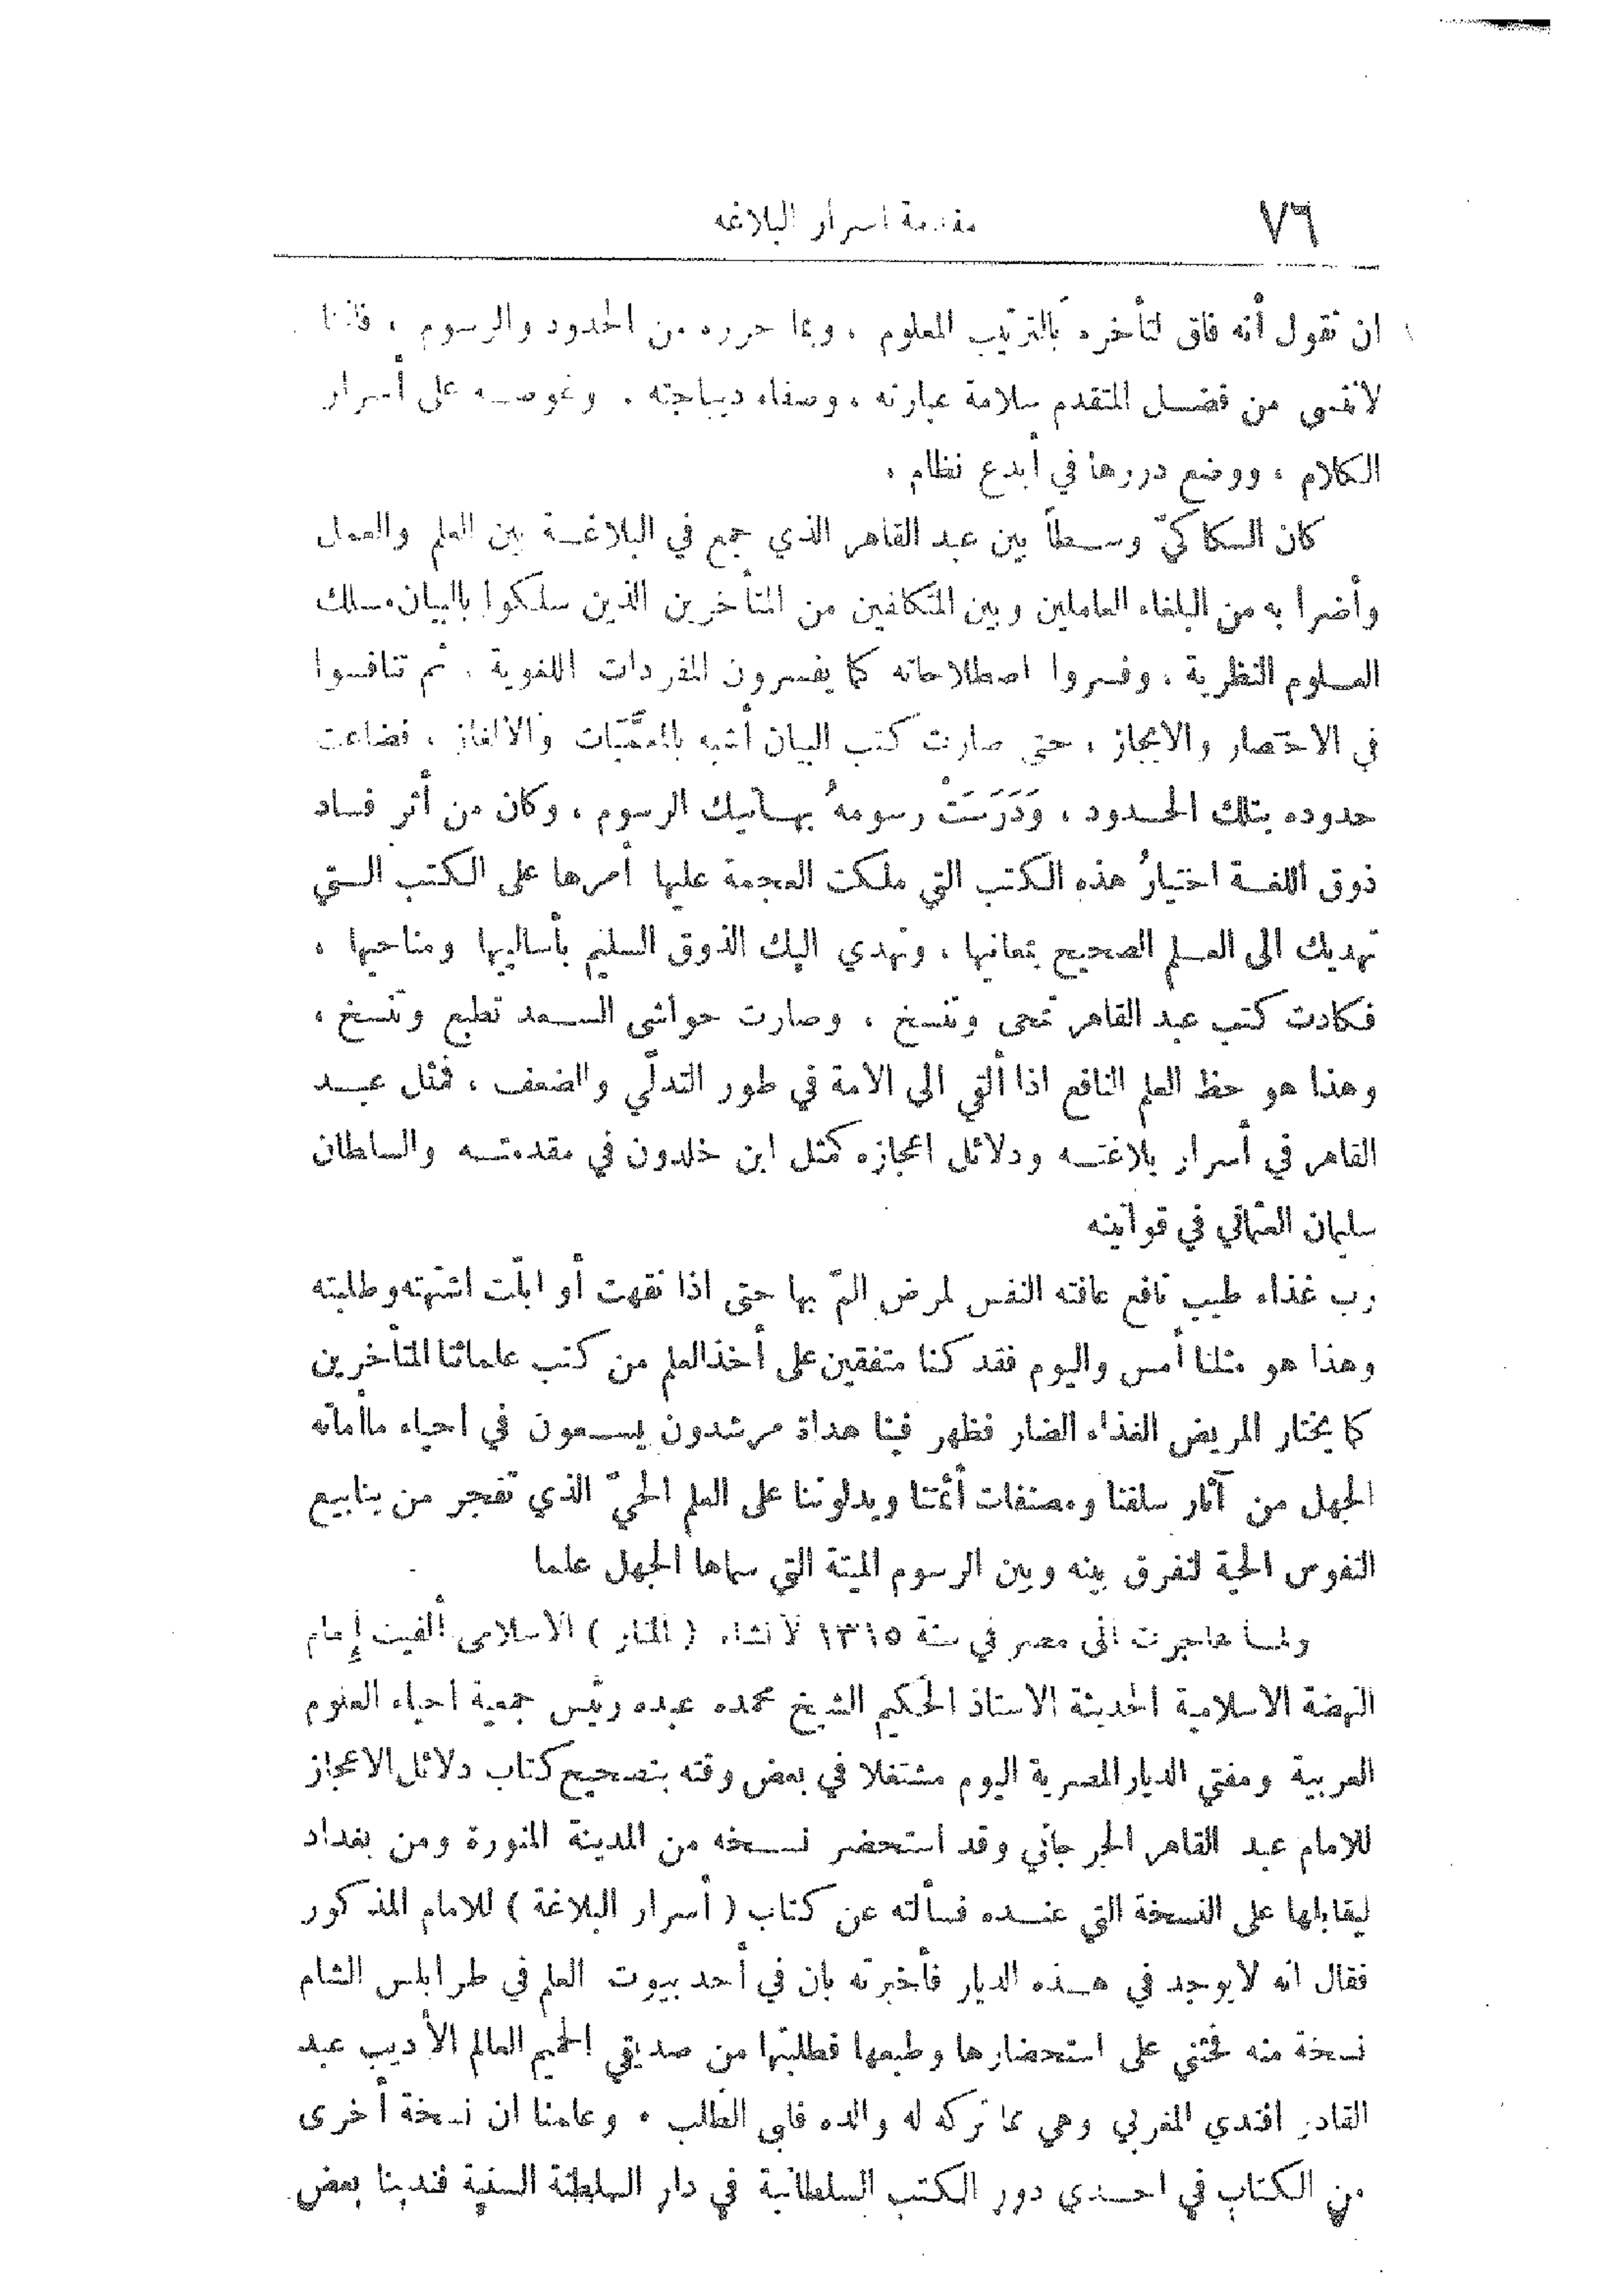 ٧٦
مقدمة اسرار البلاغه
ان نقول أنه فاق لتأخره بالترتيب المعلوم ، وبما حرره من الحدود والرسوم ، فاننا
لاننسى من فضل المتقدم سلامة عبارته ، وصفاء ديباجته . وغوصه على أسرار
الكلام ، ووضع دررها في أبدع نظام ،
كان السكاكيّ وسطاً بين عبد القاهر الذي جمع في البلاغة بين العلم والعمل
وأضرابه من البلغاء العاملين وبين المتكلفين من المتأخرين الذين سلكوا بالبيان مسلك
العلوم النظرية ، وفسروا اصطلاحاته كما يفسرون المفردات اللغوية ، ثم تنافسوا
في الاختصار والايجاز ، حتى صارت كتب البيان أشبه بالمعمَّيات والالغاز ، فضاعت
حدوده بتلك الحدود ، وَدَرَسَتْ رسومهُ بهاتيك الرسوم ، وكان من أثر فساد
ذوق اللغة اختيارُ هذه الكتب التي ملكت العجمة عليها أمرها على الكتب التي
تهديك الى العلم الصحيح بمعانيها ، وتهدي اليك الذوق السليم بأساليبها ومناحيها ،
فكادت كتب عبد القاهر تمحى وتنسخ ، وصارت حواشي السعد تطبع وتنسخ ،
وهذا هو حظ العلم النافع اذا ألقي الى الامة في طور التدلّي والضعف ، فمثل عبد
القاهر في أسرار بلاغته ودلائل اعجازه كمثل ابن خلدون في مقدمته والسلطان
سليمان العثماني في قوانينه
رب غذاء طيب نافع عافته النفس لمرض المّ بها حتى اذا نقهت أو ابلّت اشتهته وطلبته
وهذا هو مثلنا أمس واليوم فقد كنا متفقين على أخذ العلم من كتب علمائنا المتأخرين
كما يختار المريض الغذاء الضار فظهر فينا هداة مرشدون يسعون في احياء ماأماته
الجهل من آثار سلفنا ومصنفات أئمتنا ويدلوننا على العلم الحيّ الذي تفجر من ينابيع
النفوس الحية لنفرق بينه وبين الرسوم الميتة التي سماها الجهل علما
ولما هاجرت الى مصر في سنة ١٣١٥ لانشاء ( المنار ) الاسلامي ألفيت إمام
النهضة الاسلامية الحديثة الاستاذ الحكيم الشيخ محمد عبده رئيس جمعية احياء العلوم
العربية ومفتي الديار المصرية اليوم مشتغلا في بعض وقته بتصحيح كتاب دلائل الاعجاز
للامام عبد القاهر الجرجاني وقد استحضر نسخه من المدينة المنورة ومن بغداد
ليقابلها على النسخة التي عنده فسألته عن كتاب ( أسرار البلاغة ) للامام المذكور
فقال انه لايوجد في هذه الديار فأخبرته بان في أحد بيوت العلم في طرابلس الشام
نسخة منه فحثني على استحضارها وطبعها فطلبتها من صديقي الحميم العالم الأديب عبد
القادر افندي المغربي وهي مما تركه له والده فلبى الطلب . وعلمنا ان نسخة أخرى
من الكتاب في احدى دور الكتب السلطانية في دار السلطنة السنية فندبنا بعض